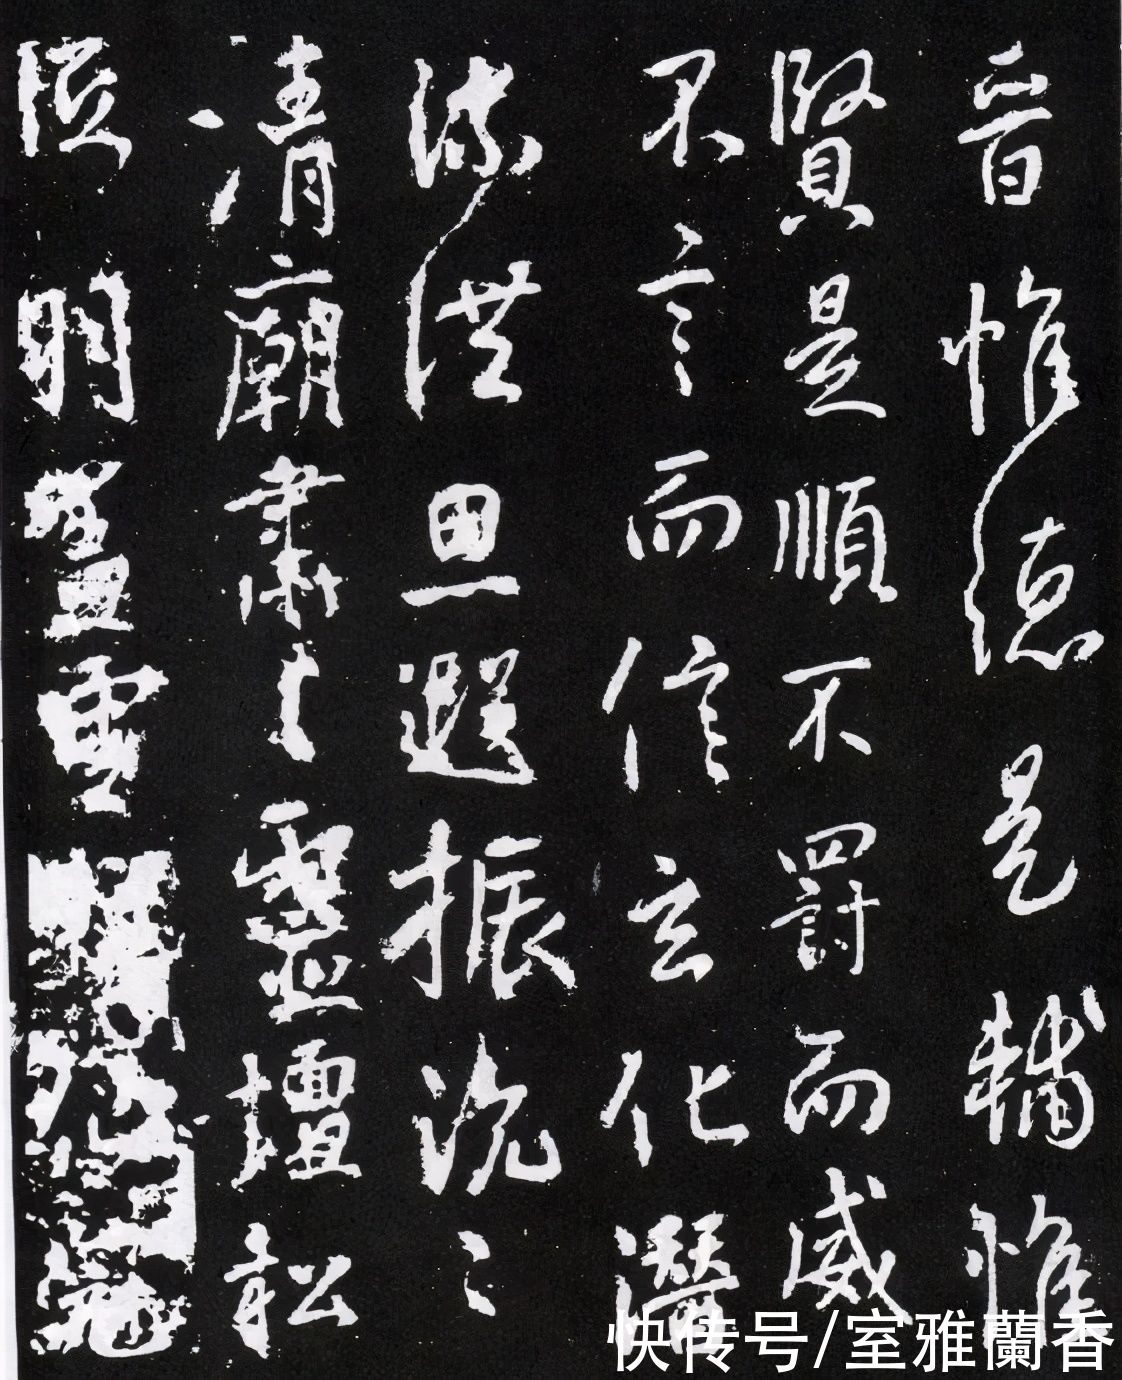 晉惟德是輔惟
賢是順不罰而威
不言而信玄化潛
流洪恩遐振沉〻
清廟肅〻靈壇松
低羽蓋雲
快传号/室雅蘭香